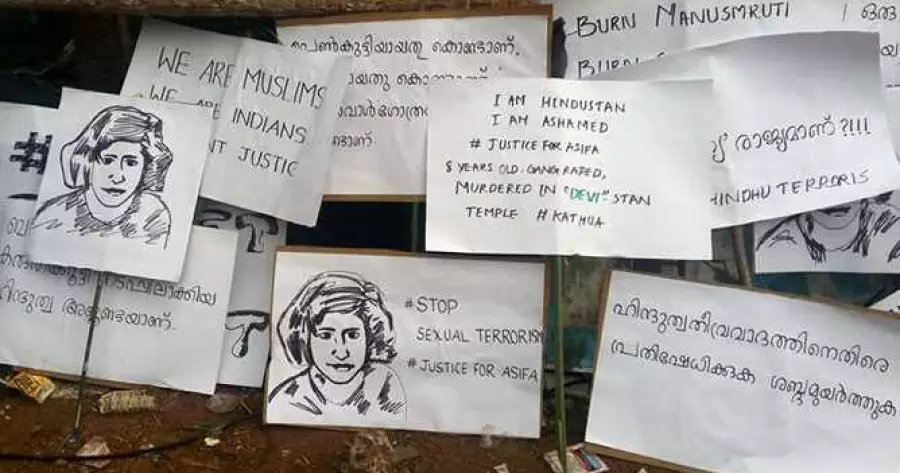 WE ARE MUSLIMS
WE ARE INDIANS
NT JUSTIC
പെൺകുട്ടിയായതു കൊണ്ടാണ്.
BURN MANUSMRUTI
ഒരു
I AM HINDUSTAN
I AM ASHAMED
# JUSTICE FOR ASIFA
8 YEARS OLD. GANG RAPED,
MURDERED IN "DEVI" STAN
TEMPLE # KATHUA
രാജ്യമാണ് ?!!!
HINDHU TERRORIS
#
ഹിന്ദുത്വ അജണ്ടയാണ്.
#STOP
SEXUAL TERRORISM
# JUSTICE FOR ASIFA
ഹിന്ദുത്വതീവ്രവാദത്തിനെതിരെ
പ്രതിഷേധിക്കുക ശബ്ദമുയർത്തുക